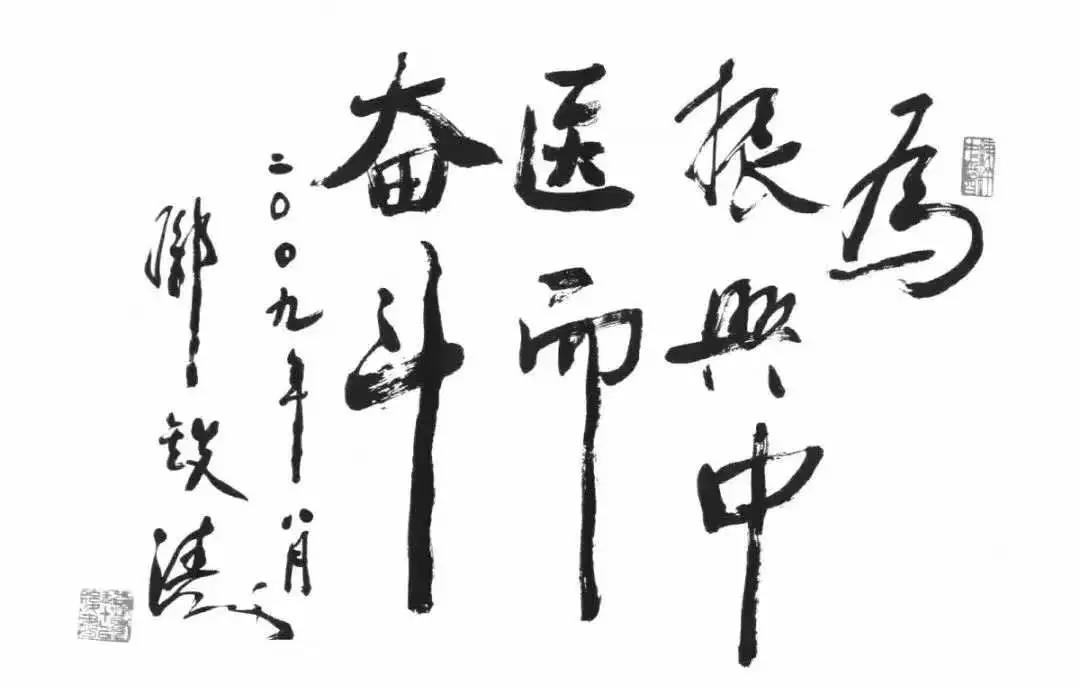 為
振興中
医而
奋斗
二〇〇九年八月
鄧铁涛